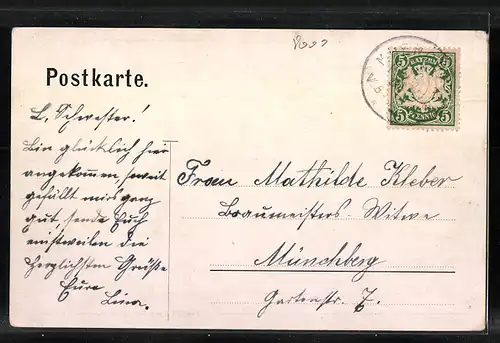 Postkarte.
BAYERN
5 5
5 PFENNIG 5
L. Schwester!
Bin glücklich hier
angekommen soweit
gefällt mirs ganz
gut sende Euch
einstweilen die
herzlichsten Grüße
Eure
Lina.
Frau Mathilde Kleber
Braumeisters Witwe
Münchberg
Gartenstr. 7.